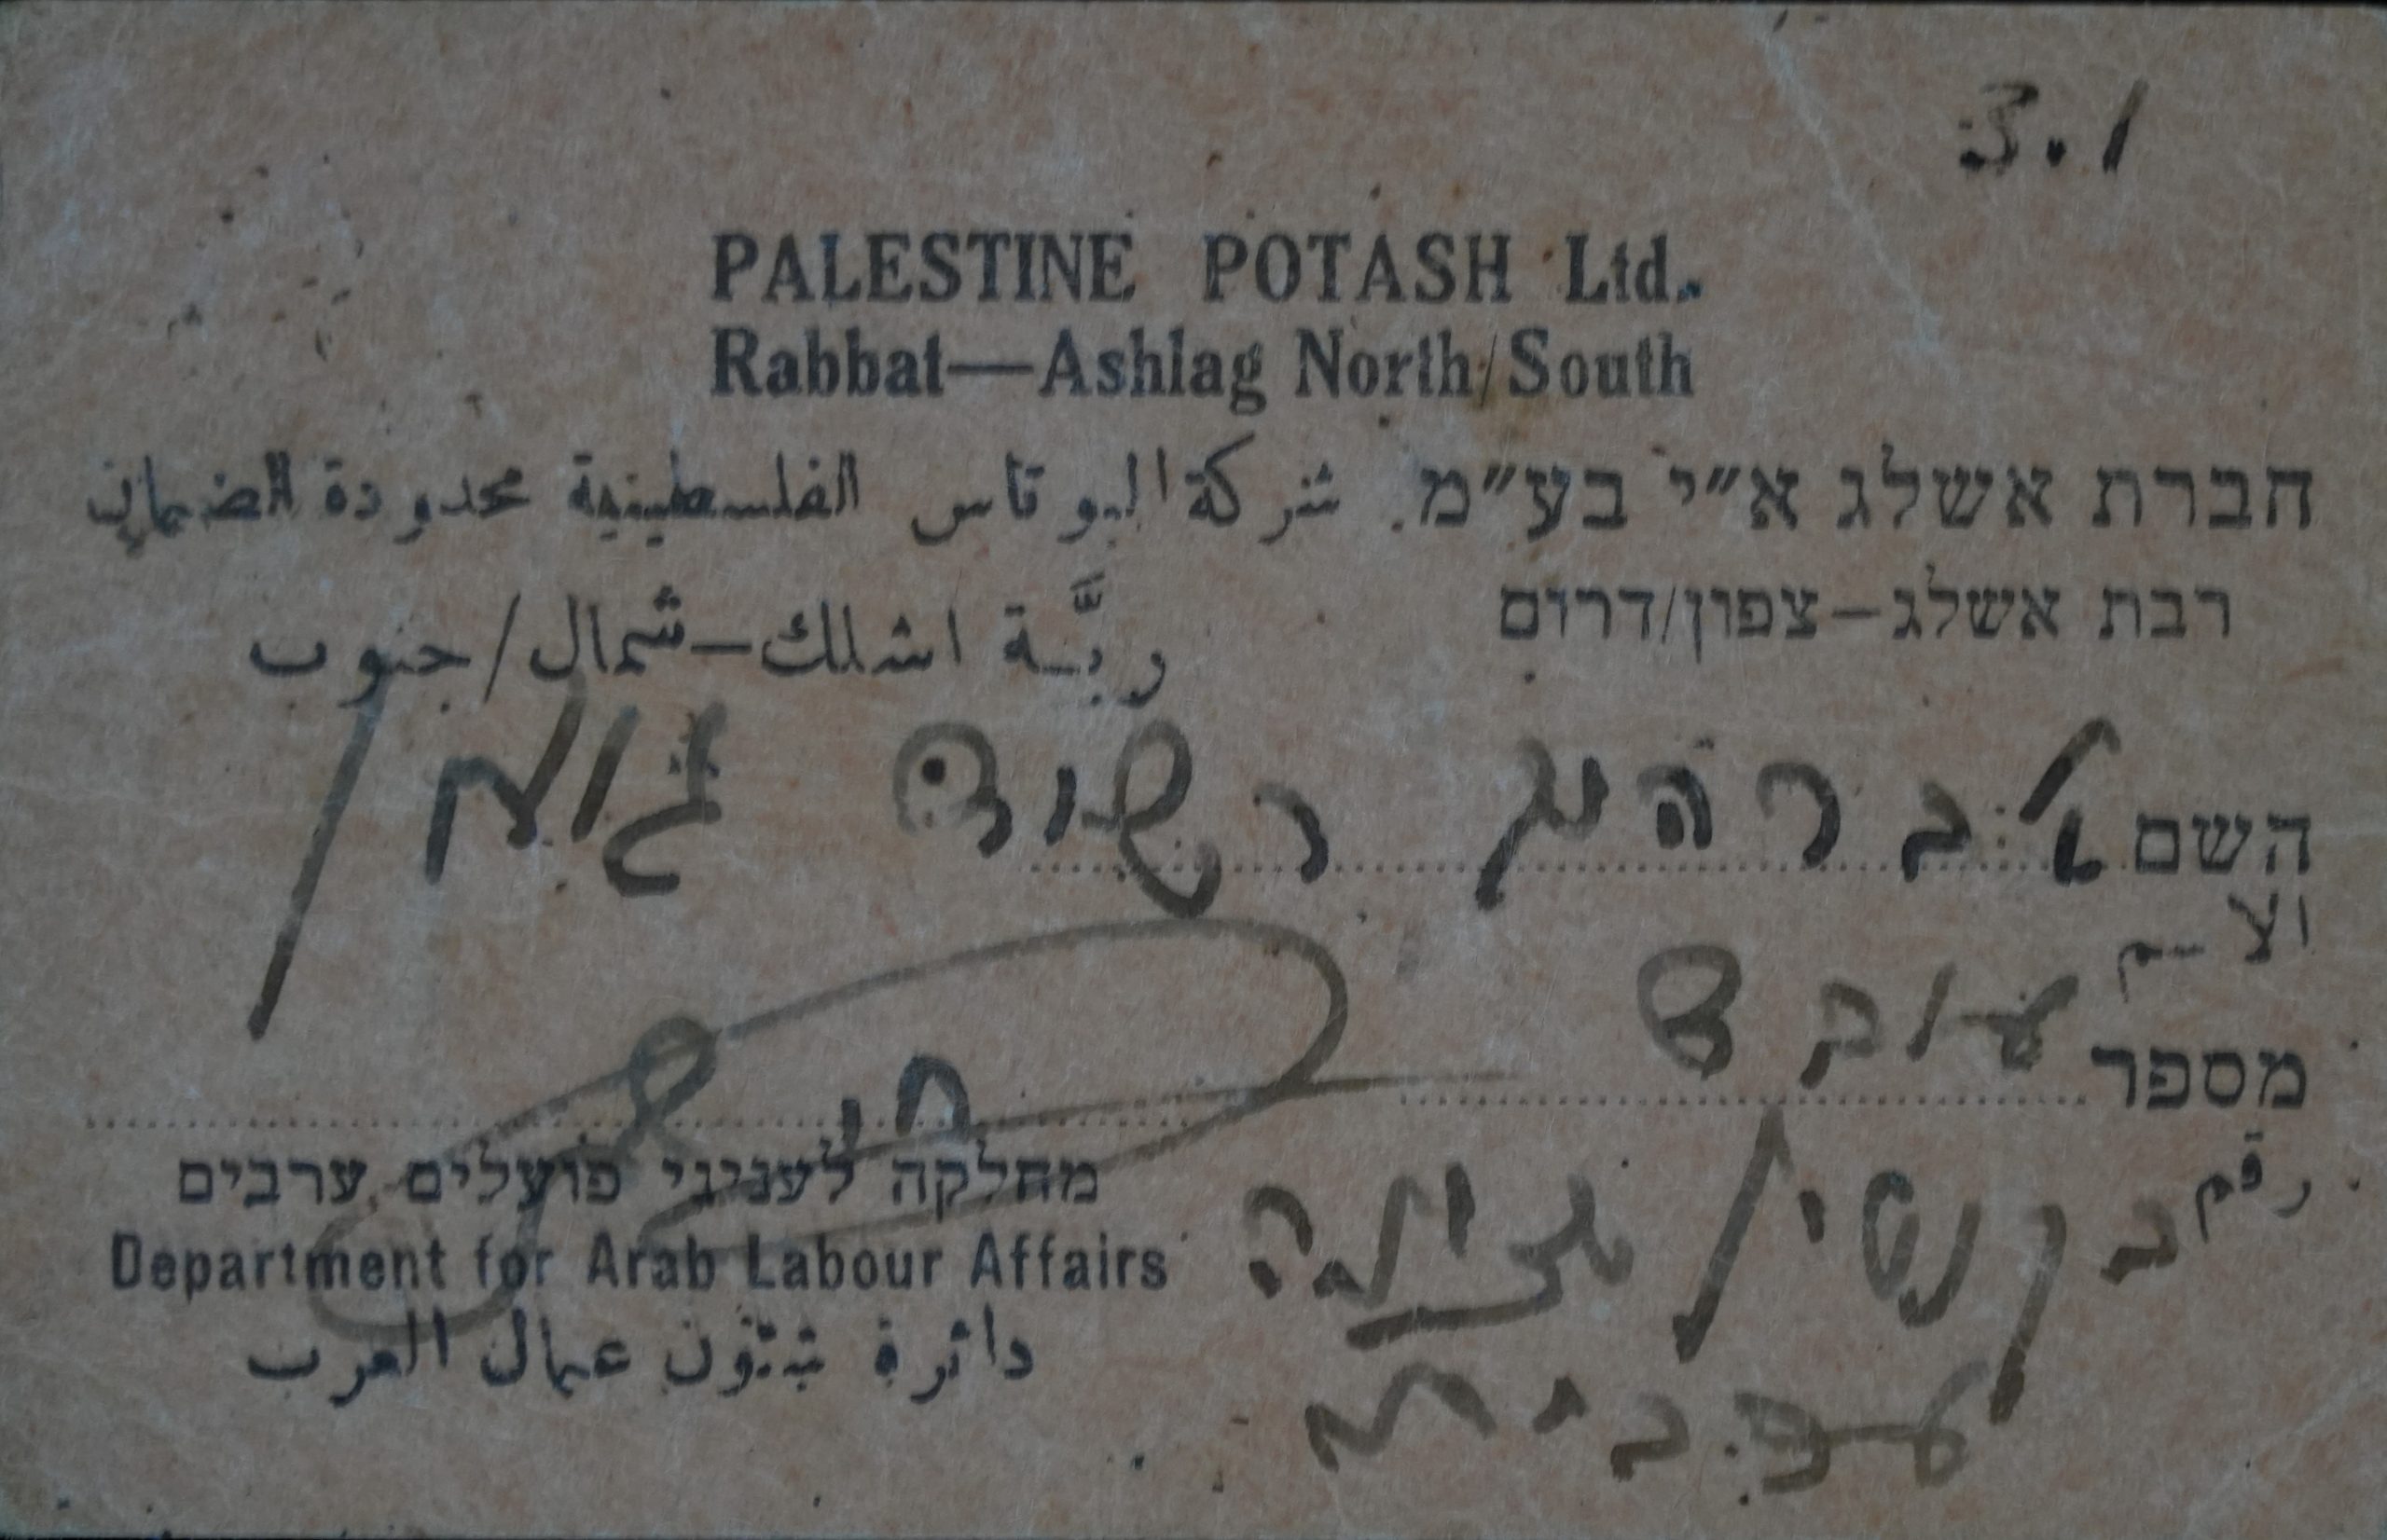 3.1
PALESTINE POTASH Ltd.
Rabbat—Ashlag North/South
חברת אשלג א״י בע״מ. شركة البوتاس الفلسطينية محدودة الضمان
רבת אשלג–צפון/דרום ربَّة اشلك–شمال/جنوب
השם אברהים רשיד
الاسم
עובד
מספר
رقم
מחלקה לעניני פועלים ערבים
Department for Arab Labour Affairs
دائرة شئون عمال العرب